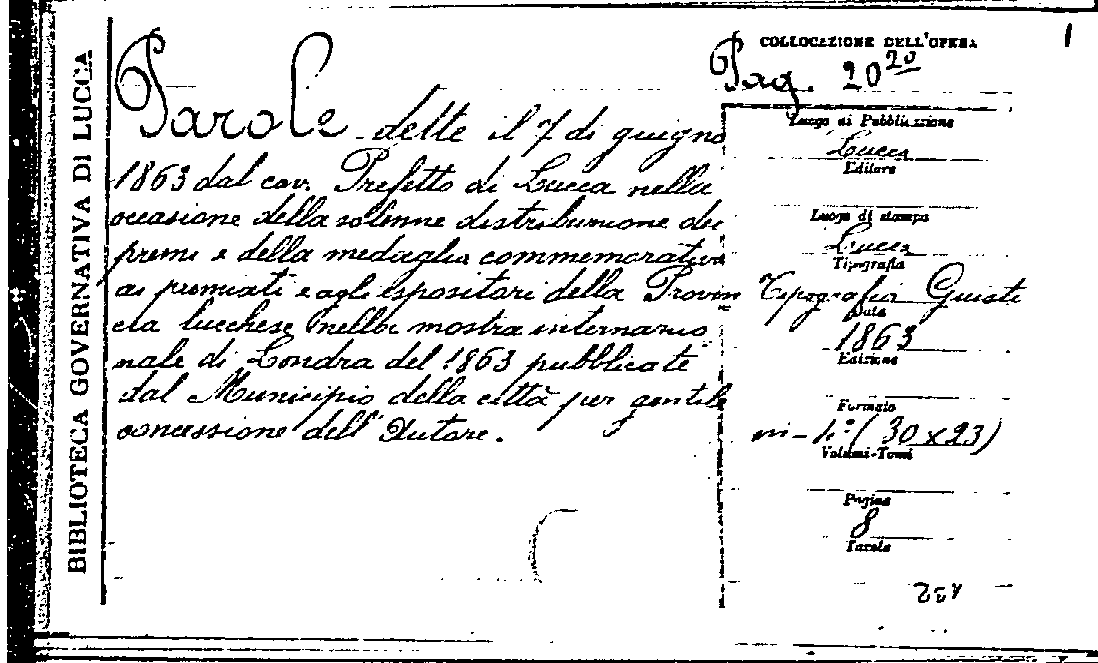 BIBLIOTECA GOVERNATIVA DI LUCCA
Parole dette il 7 di giugno
1863 dal cav. Prefetto di Lucca nella
occasione della solenne distribuzione dei
premi e della medaglia commemorativa
ai premiati e agli espositori della Provin
cia lucchese nella mostra internazio
nale di Londra del 1863 pubblicate
dal Municipio della città per gentile
concessione dell'Autore.
COLLOCAZIONE DELL'OPERA
1
Pag. 20 20
Luogo di Pubblicazione
Lucca
Editore
Luogo di stampa
Lucca
Tipografia
Tipografia Giusti
Data
1863
Edizione
Formato
in-4° (30x23)
Volumi-Tomi
Pagine
8
Tavole